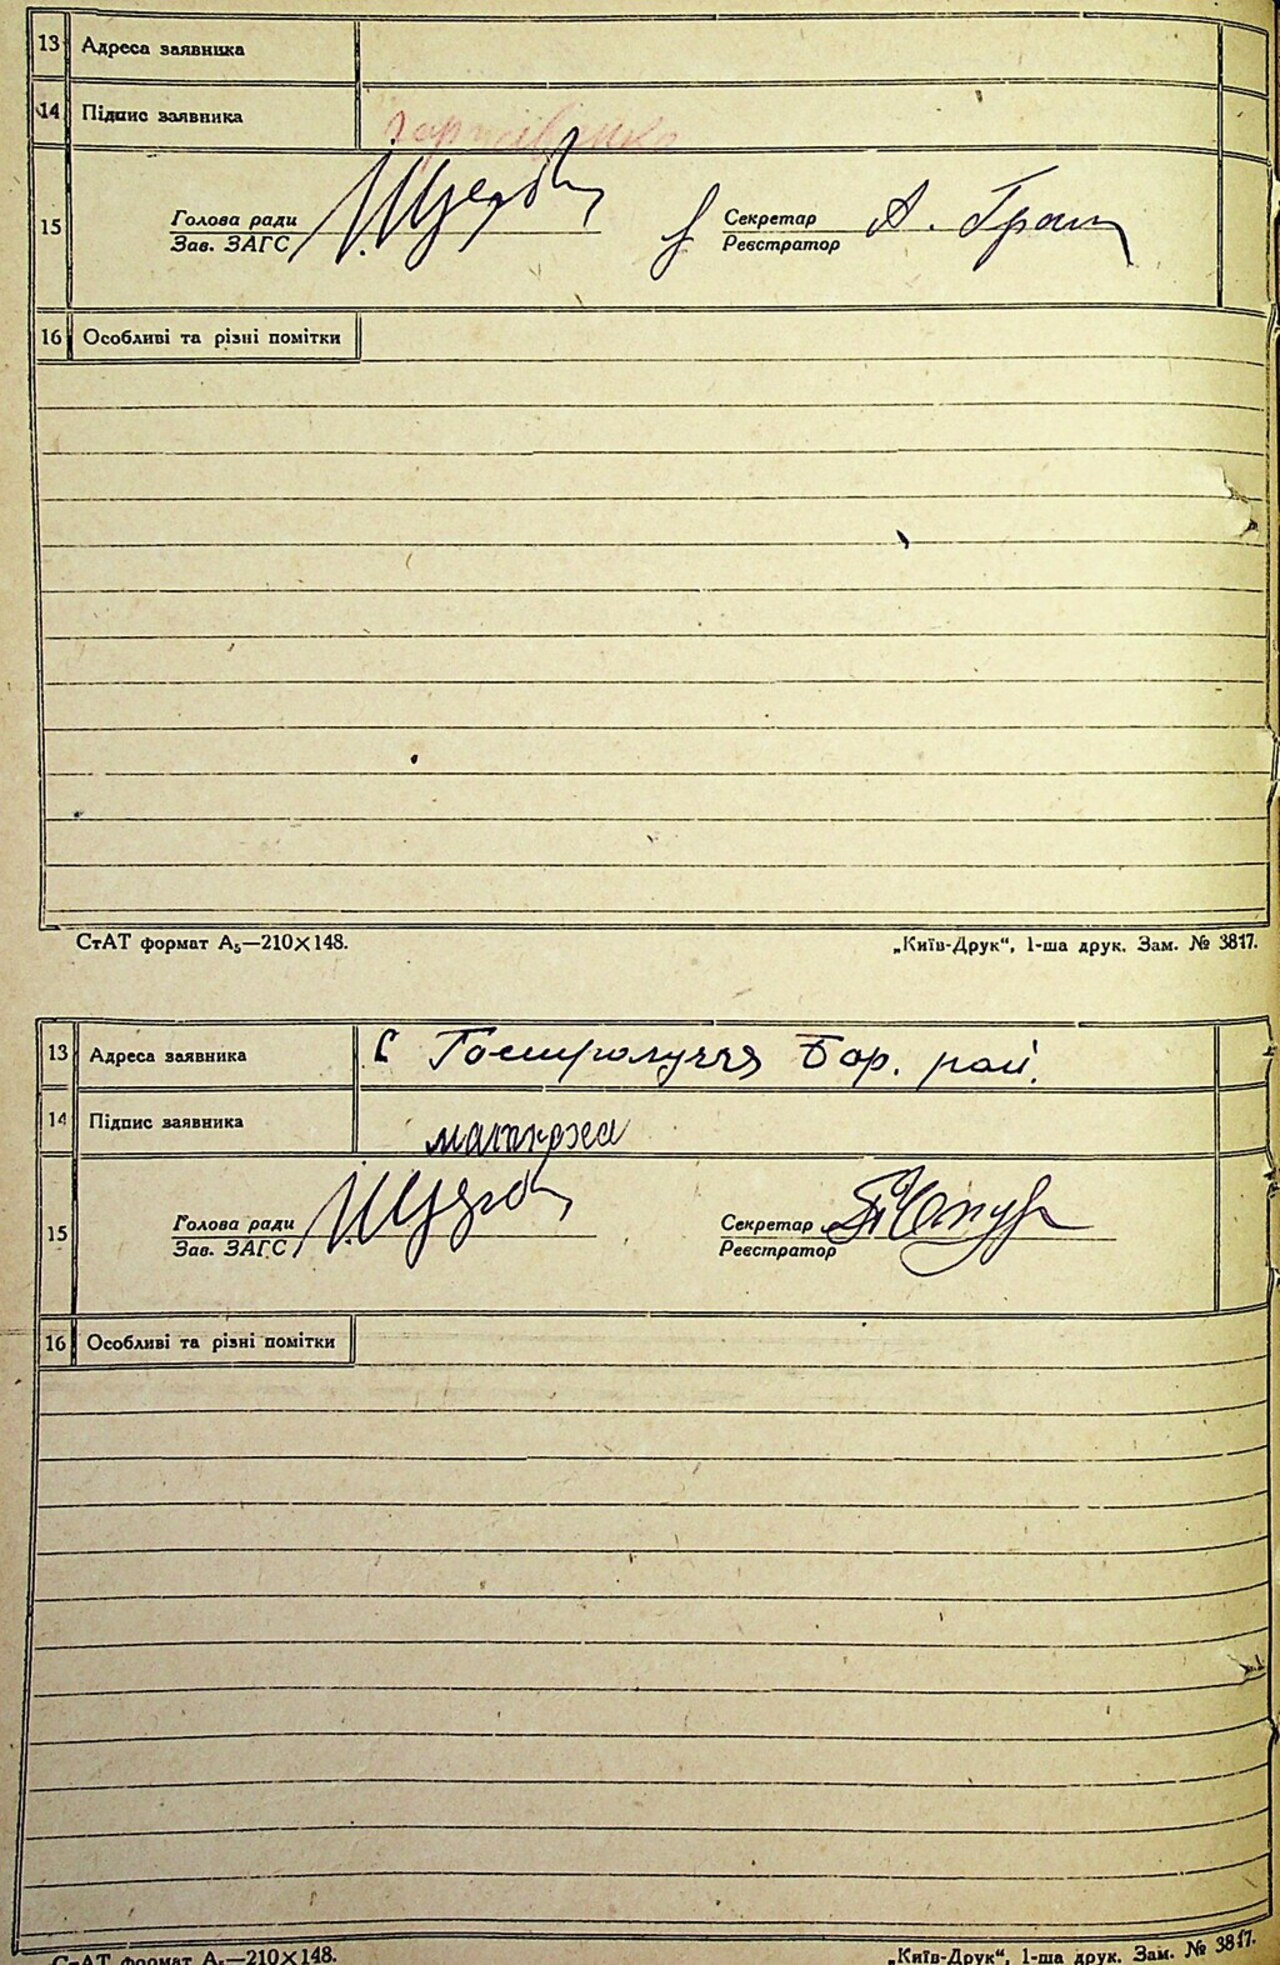 13 Адреса заявника
14 Підпис заявника
15 Голова ради Секретар А.
Зав. ЗАГС Реєстратор
16 Особливі та різні помітки
СтАТ формат А5—210×148. „Київ-Друк“, 1-ша друк. Зам. № 3817.
13 Адреса заявника с Гостролуччя Бар. рай.
14 Підпис заявника
15 Голова ради Секретар
Зав. ЗАГС Реєстратор
16 Особливі та різні помітки
СтАТ формат А5—210×148. „Київ-Друк“, 1-ша друк. Зам. № 3817.